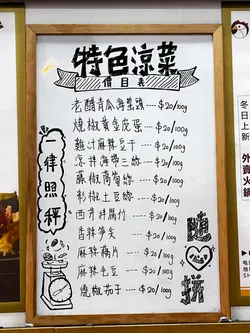 特色涼菜
價目表
老醋青瓜海蜇頭----$20/100g
燒椒黃金皮蛋---$20/100g
雞汁麻辣豆干---$20/100g
涼拌海帶三絲---$20/100g
藤椒萵筍絲---$20/100g
彩椒土豆絲---$20/100g
西芹拌腐竹---$20/100g
香辣筍尖----$20/100g
麻辣藕片----$20/100g
麻辣毛豆----$20/100g
燒椒茄子---$20/100g
一律照秤
隨
心
拼
冬日
上
新
外賣
火
鍋